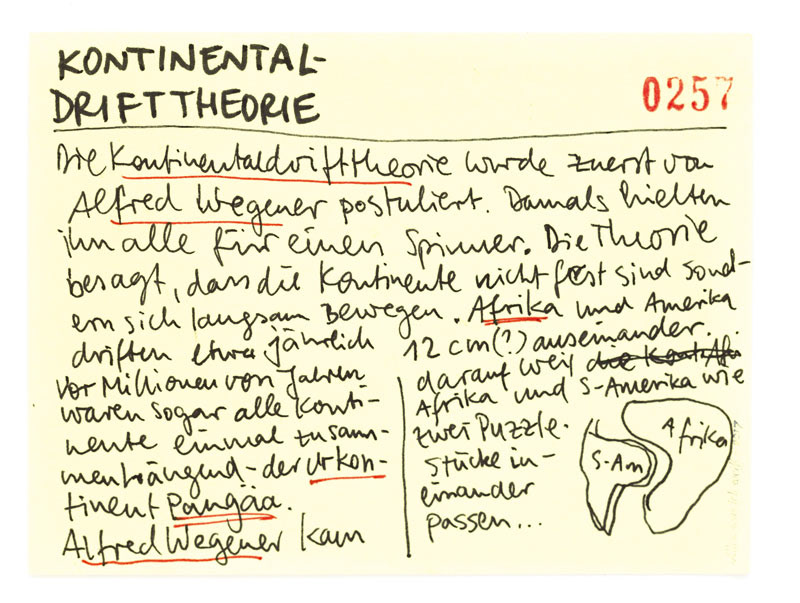 KONTINENTAL-
DRIFTTHEORIE
0257
Die Kontinentaldrifttheorie wurde zuerst von
Alfred Wegener postuliert. Damals hielten
ihn alle für einen Spinner. Die Theorie
besagt, dass die Kontinente nicht fest sind sond-
ern sich langsam bewegen. Afrika und Amerika
driften etwa jährlich 12 cm(?) auseinander.
Vor Millionen von Jahren
waren sogar alle Konti-
nente einmal zusam-
menhängend - der Urkon-
tinent Pangäa.
Alfred Wegener kam
darauf weil
Afrika und S-Amerika wie
zwei Puzzle-
stücke in-
einander
passen...
S-Am
Afrika